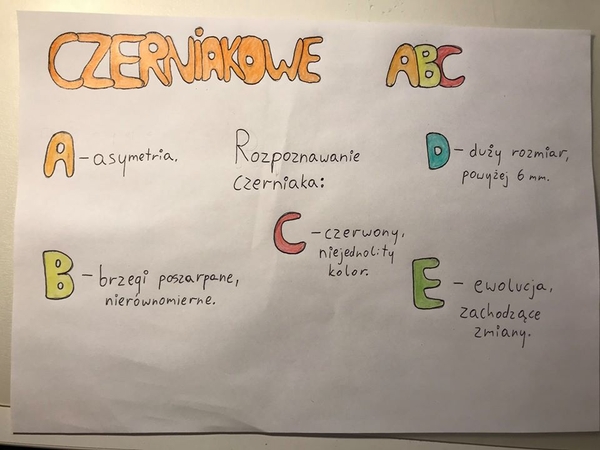 CZERNIAKOWE ABC
A - asymetria.
Rozpoznawanie
czerniaka:
D - duży rozmiar,
powyżej 6 mm.
B - brzegi poszarpane,
nierównomierne.
C - czerwony,
niejednolity
kolor.
E - ewolucja,
zachodzące
zmiany.